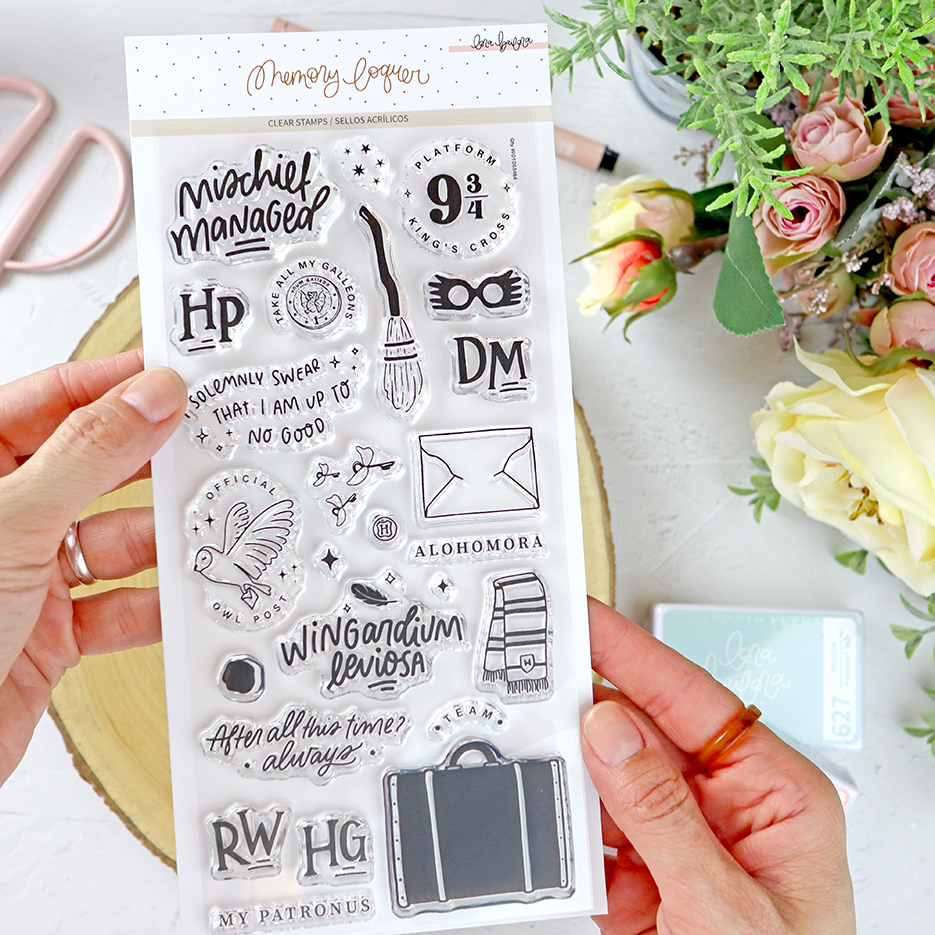 lora bailora
Memory loquer
CLEAR STAMPS / SELLOS ACRÍLICOS
mischief
managed
PLATFORM
9 3/4
KING'S CROSS
HP
TAKE ALL MY GALLEONS
1
DM
I SOLEMNLY SWEAR
THAT I AM UP TO
NO GOOD
OFFICIAL
OWL POST
H
ALOHOMORA
WINGARDIUM
leviosa
H
After all this time?
always
TEAM
RW
HG
MY PATRONUS
lora
bailora
627